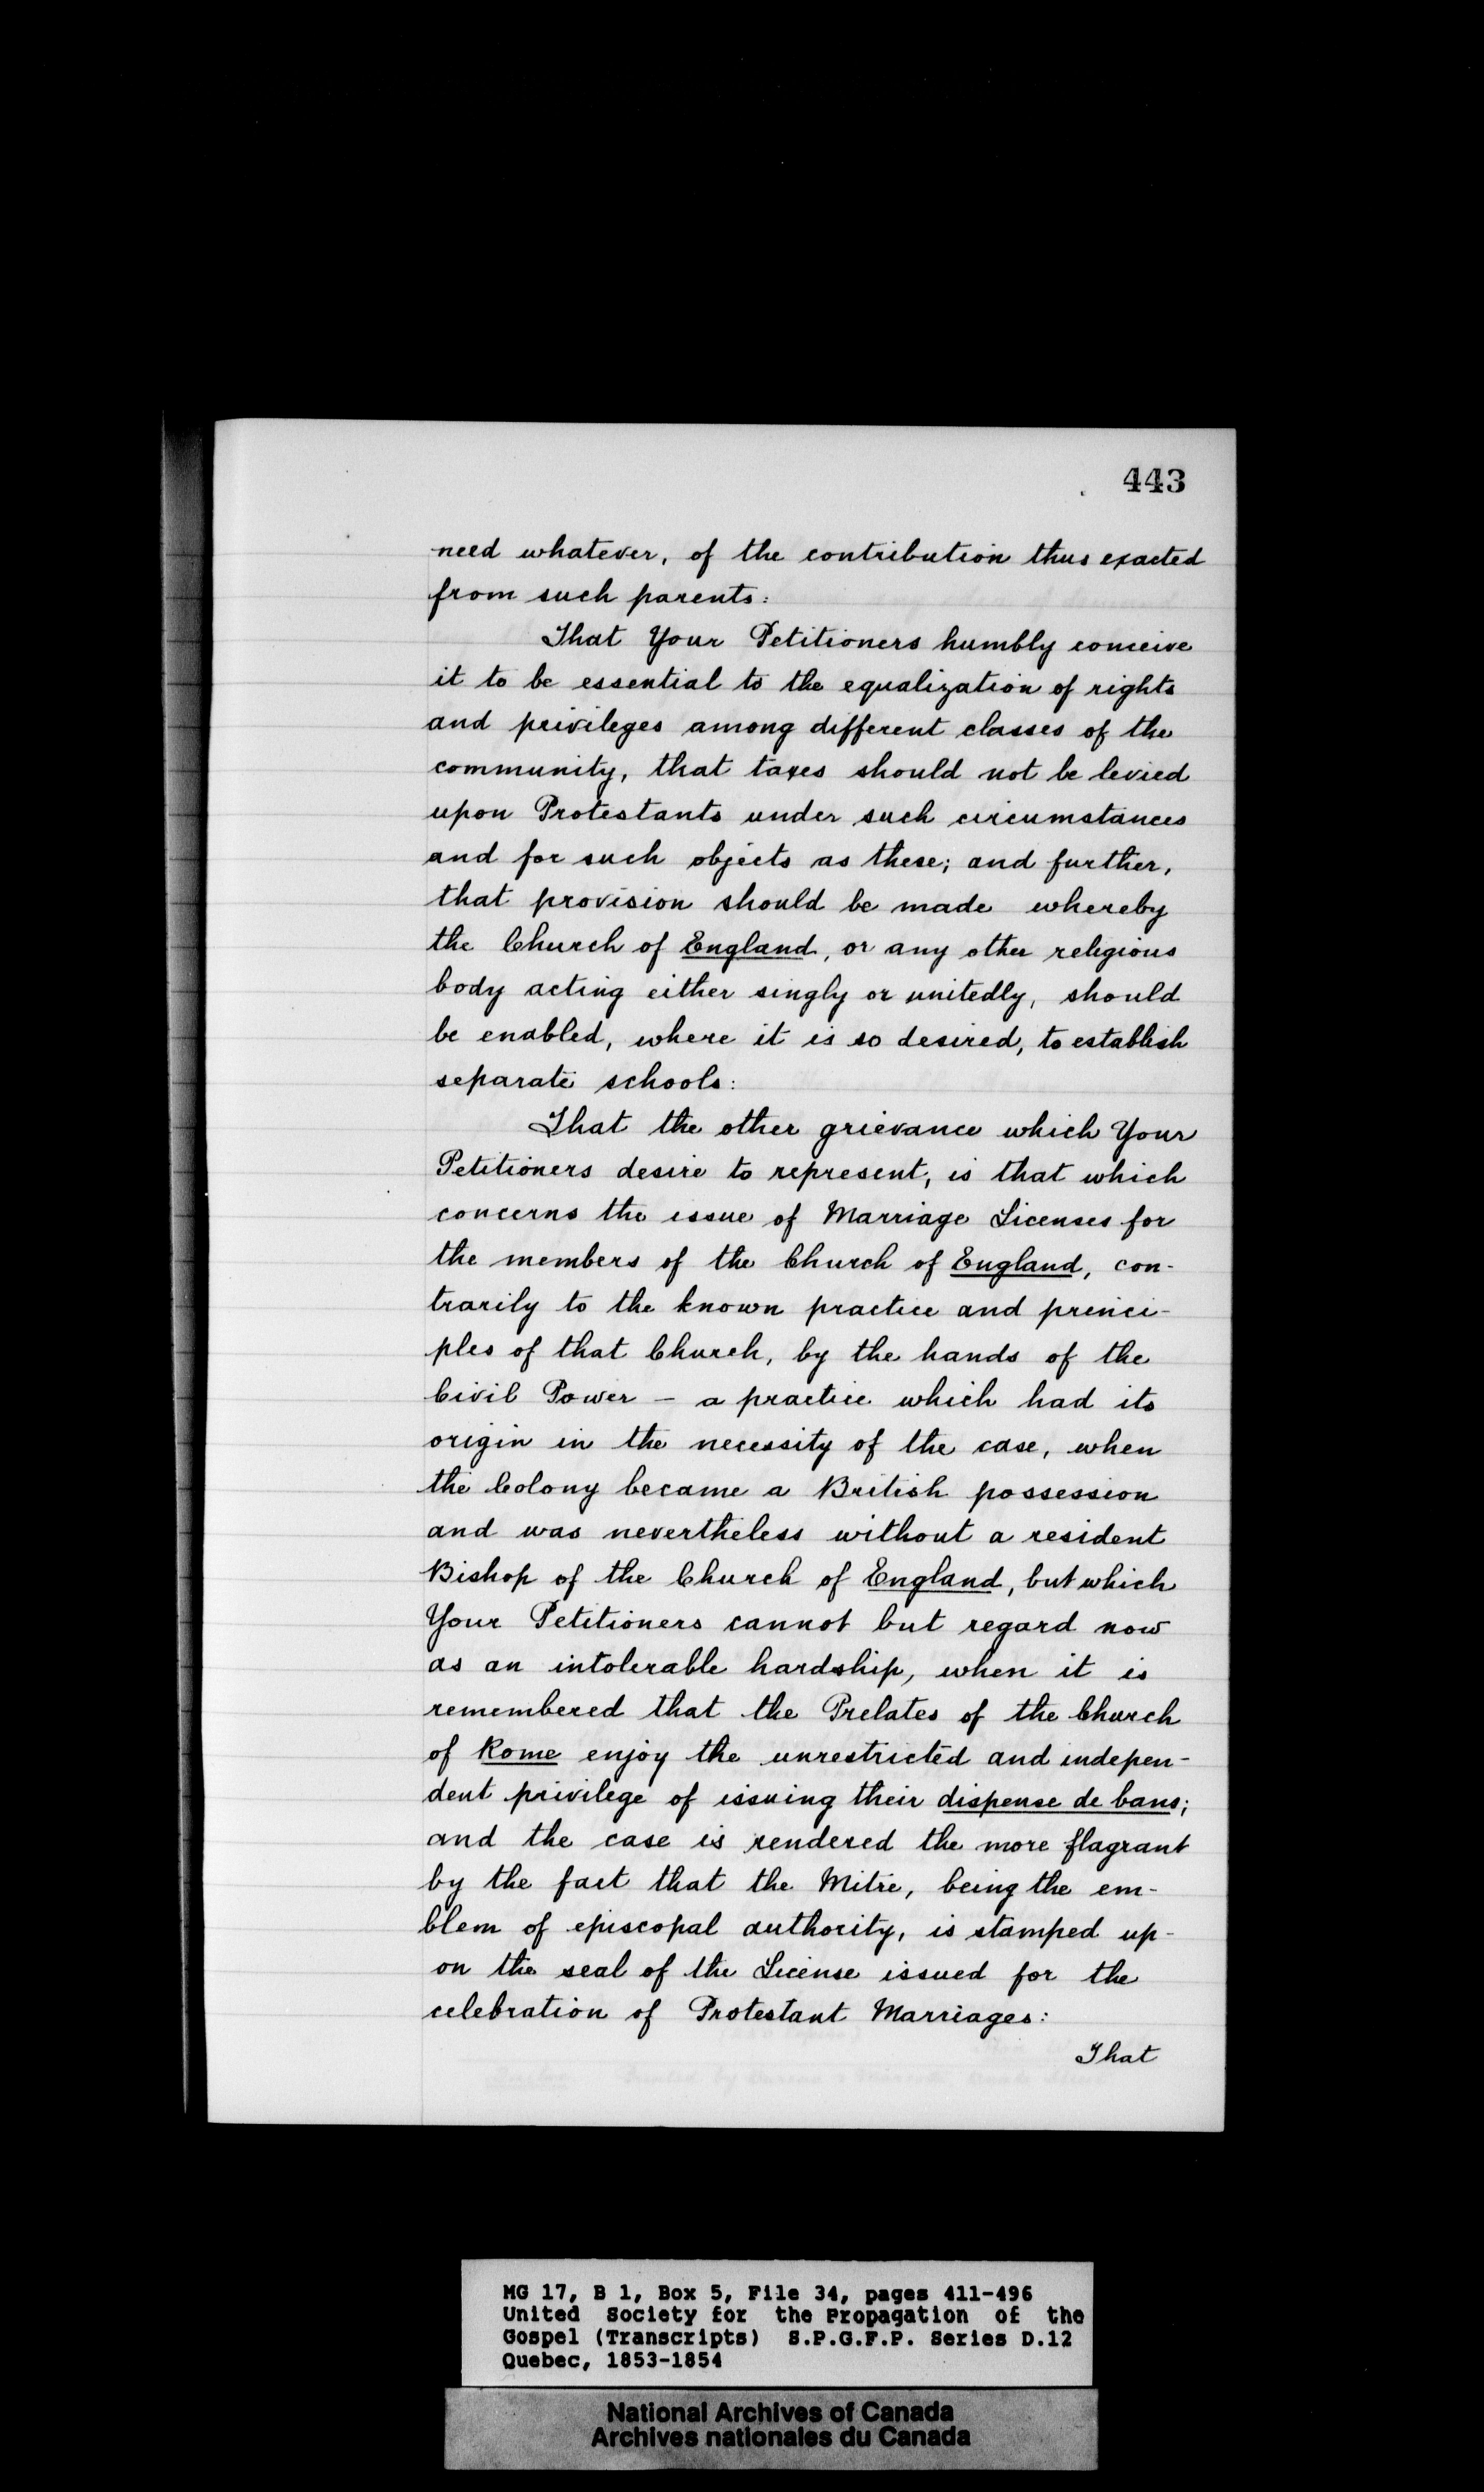 443
need whatever, of the contribution thus exacted
from such parents:
That Your Petitioners humbly conceive
it to be essential to the equalization of rights
and privileges among different classes of the
community, that taxes should not be levied
upon Protestants under such circumstances
and for such objects as these; and further,
that provision should be made whereby
the Church of England, or any other religious
body acting either singly or unitedly, should
be enabled, where it is so desired, to establish
separate schools:
That the other grievance which Your
Petitioners desire to represent, is that which
concerns the issue of Marriage Licenses for
the members of the Church of England, con-
trarily to the known practice and princi-
ples of that Church, by the hands of the
Civil Power - a practice which had its
origin in the necessity of the case, when
the Colony became a British possession
and was nevertheless without a resident
Bishop of the Church of England, but which
Your Petitioners cannot but regard now
as an intolerable hardship, when it is
remembered that the Prelates of the Church
of Rome enjoy the unrestricted and indepen-
dent privilege of issuing their dispense de bans;
and the case is rendered the more flagrant
by the fact that the Mitre, being the em-
blem of episcopal authority, is stamped up-
on the seal of the License issued for the
celebration of Protestant Marriages:
That
MG 17, B 1, Box 5, File 34, pages 411-496
United Society for the Propagation of the
Gospel (Transcripts) S.P.G.F.P. Series D.12
Quebec, 1853-1854
National Archives of Canada
Archives nationales du Canada